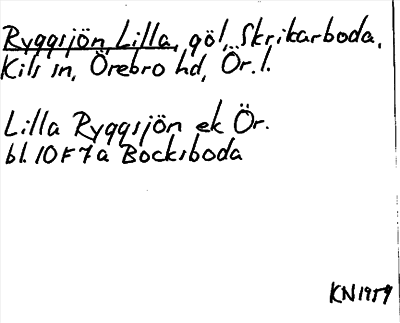 Ryggsjön, Lilla, göl, Skrikarboda,
Kils sn, Örebro hd, Ör. l.
Lilla Ryggsjön ek Ör.
bl. 10F7a Bocksboda
KN1959